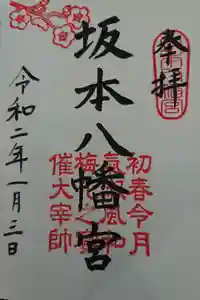 奉拝
坂本八幡宮
令和二年一月三日
初春令月
氣 風和
梅 之
催大宰帥